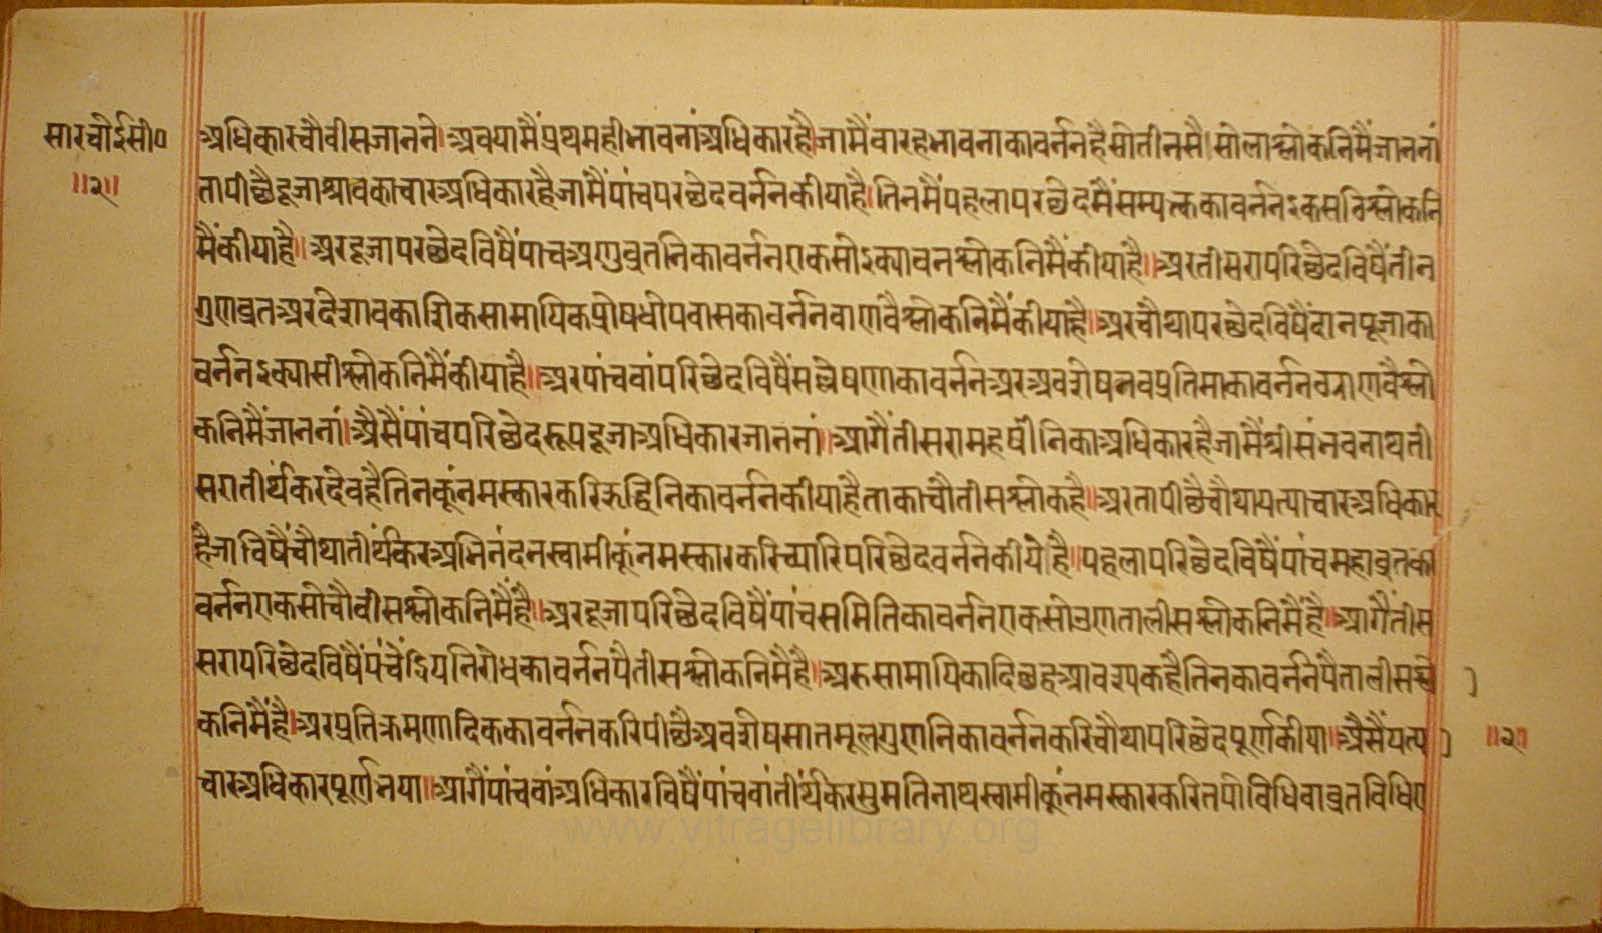 सारचोईसी०
॥२॥
अधिकारचौवीसजानने।अवयामैंप्रथमहीभावनांअधिकारहै।जामैंवारहभावनाकावर्ननहैसोतीनसै।सोलाश्लोकनिमैंजाननां
तापीछैदूजाश्रावकाचारअधिकारहैजामैंपांचपरछेदवर्ननकीयाहै।तिनमैंपहलापरछेदमैंसम्यत्ककावर्ननइकसठिश्लोकनि
मैंकीयाहै॥अरदूजापरछेदविषैंपांचअणुव्रतनिकावर्ननएकसोइक्यावनश्लोकनिमैंकीयाहै॥अरतीसरापरिछेदविषैंतीन
गुणव्रतअरदेशावकाशिकसामायिकप्रोषधोपवासकावर्ननवाणवैश्लोकनिमैंकीयाहै॥अरचौथापरछेदविषैंदानपूजाका
वर्ननइक्यासीश्लोकनिमैंकीयाहै॥अरपांचवांपरिछेदविषैंसल्लेषणाकावर्ननअरअवशेषनवप्रतिमाकावर्ननचराणवैश्लो
कनिमैंजाननां॥अैसैंपांचपरिछेदरूपदूजाअधिकारजाननां॥आगैंतीसरामहर्षीनिकाअधिकारहैजामैंश्रीसंभवनाथती
सरातीर्थंकरदेवहैतिनकूंनमस्कारकरिऋद्धिनिकावर्ननकीयाहैताकाचौतीसश्लोकहै॥अरतापीछैचौथायत्याचारअधिकार
हैजाविषैंचौथातीर्थंकरअभिनंदनस्वामीकूंनमस्कारकरिच्यारिपरिछेदवर्ननकीयेहै॥पहलापरिछेदविषैंपांचमहाव्रतका
वर्ननएकसोचौवीसश्लोकनिमैंहै॥अरदूजापरिछेदविषैंपांचसमितिकावर्ननएकसोउणतालीसश्लोकनिमैंहै॥आगैंतीस
सरापरिछेदविषैंपंचेंद्रियनिरोधकावर्ननपैतीसश्लोकनिमैंहै॥अरुसामायिकादिछहआवश्यकहैतिनकावर्ननपैतालीसश्लो
कनिमैंहै॥अरप्रतिक्रमणादिककावर्ननकरिपीछैअवशेषसातमूलगुणनिकावर्ननकरिचौथापरिछेदपूर्णकीया॥अैसैंयत्य
चारअधिकारपूर्णभया॥आगैंपांचवांअधिकारविषैंपांचवांतीर्थंकरसुमतिनाथस्वामीकूंनमस्कारकरितपोविधिवाव्रतविधिए
॥२॥
www.vitragelibrary.org